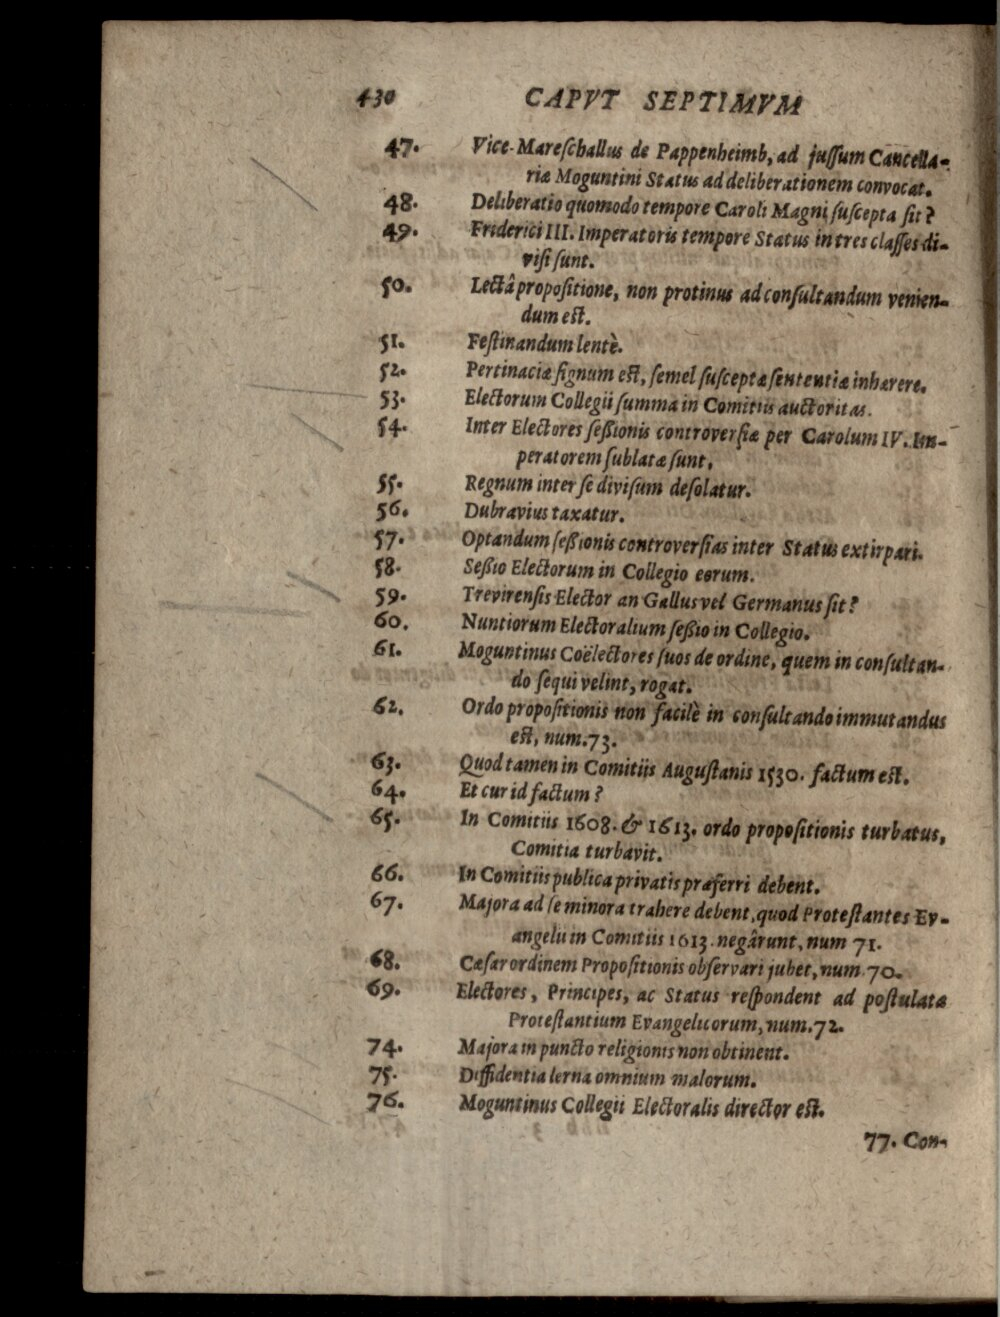 430 CAPVT SEPTIMVM
47. Vice-Mareſchallus de Pappenheimb, ad juſſum Cancella-
riæ Moguntini Status ad deliberationem convocat.
48. Deliberatio quomodo tempore Caroli Magni ſuſcepta ſit?
49. Friderici III. Imperatoris tempore Status in tres claſſes di-
viſi ſunt.
50. Lectâ propoſitione, non protinus ad conſultandum venien-
dum eſt.
51. Feſtinandum lentè.
52. Pertinaciæ ſignum eſt, ſemel ſuſceptæ ſententiæ inhærere.
53. Electorum Collegii ſumma in Comitiis auctoritas.
54. Inter Electores ſeßionis controverſiæ per Carolum IV. Im-
peratorem ſublatæ ſunt.
55. Regnum inter ſe diviſum deſolatur.
56. Dubravius taxatur.
57. Optandum ſeßionis controverſias inter Status extirpari.
58. Seßio Electorum in Collegio eorum.
59. Trevirenſis Elector an Gallus vel Germanus ſit?
60. Nuntiorum Electoralium ſeßio in Collegio.
61. Moguntinus Coëlectores ſuos de ordine, quem in conſultan-
do ſequi velint, rogat.
62. Ordo propoſitionis non facilè in conſultando immutandus
eſt, num.73.
63. Quod tamen in Comitiis Auguſtanis 1530. factum eſt.
64. Et cur id factum?
65. In Comitiis 1608. & 1613. ordo propoſitionis turbatus,
Comitia turbavit.
66. In Comitiis publica privatis præferri debent.
67. Majora ad ſe minora trahere debent, quod Proteſtantes Ev-
angelii in Comitiis 1613. negârunt, num 71.
68. Cæſar ordinem Propoſitionis obſervari jubet, num.70.
69. Electores, Principes, ac Status reſpondent ad poſtulata
Proteſtantium Evangelicorum, num.72.
74. Majora in puncto religionis non obtinent.
75. Diffidentia lerna omnium malorum.
76. Moguntinus Collegii Electoralis director eſt.
77. Con-